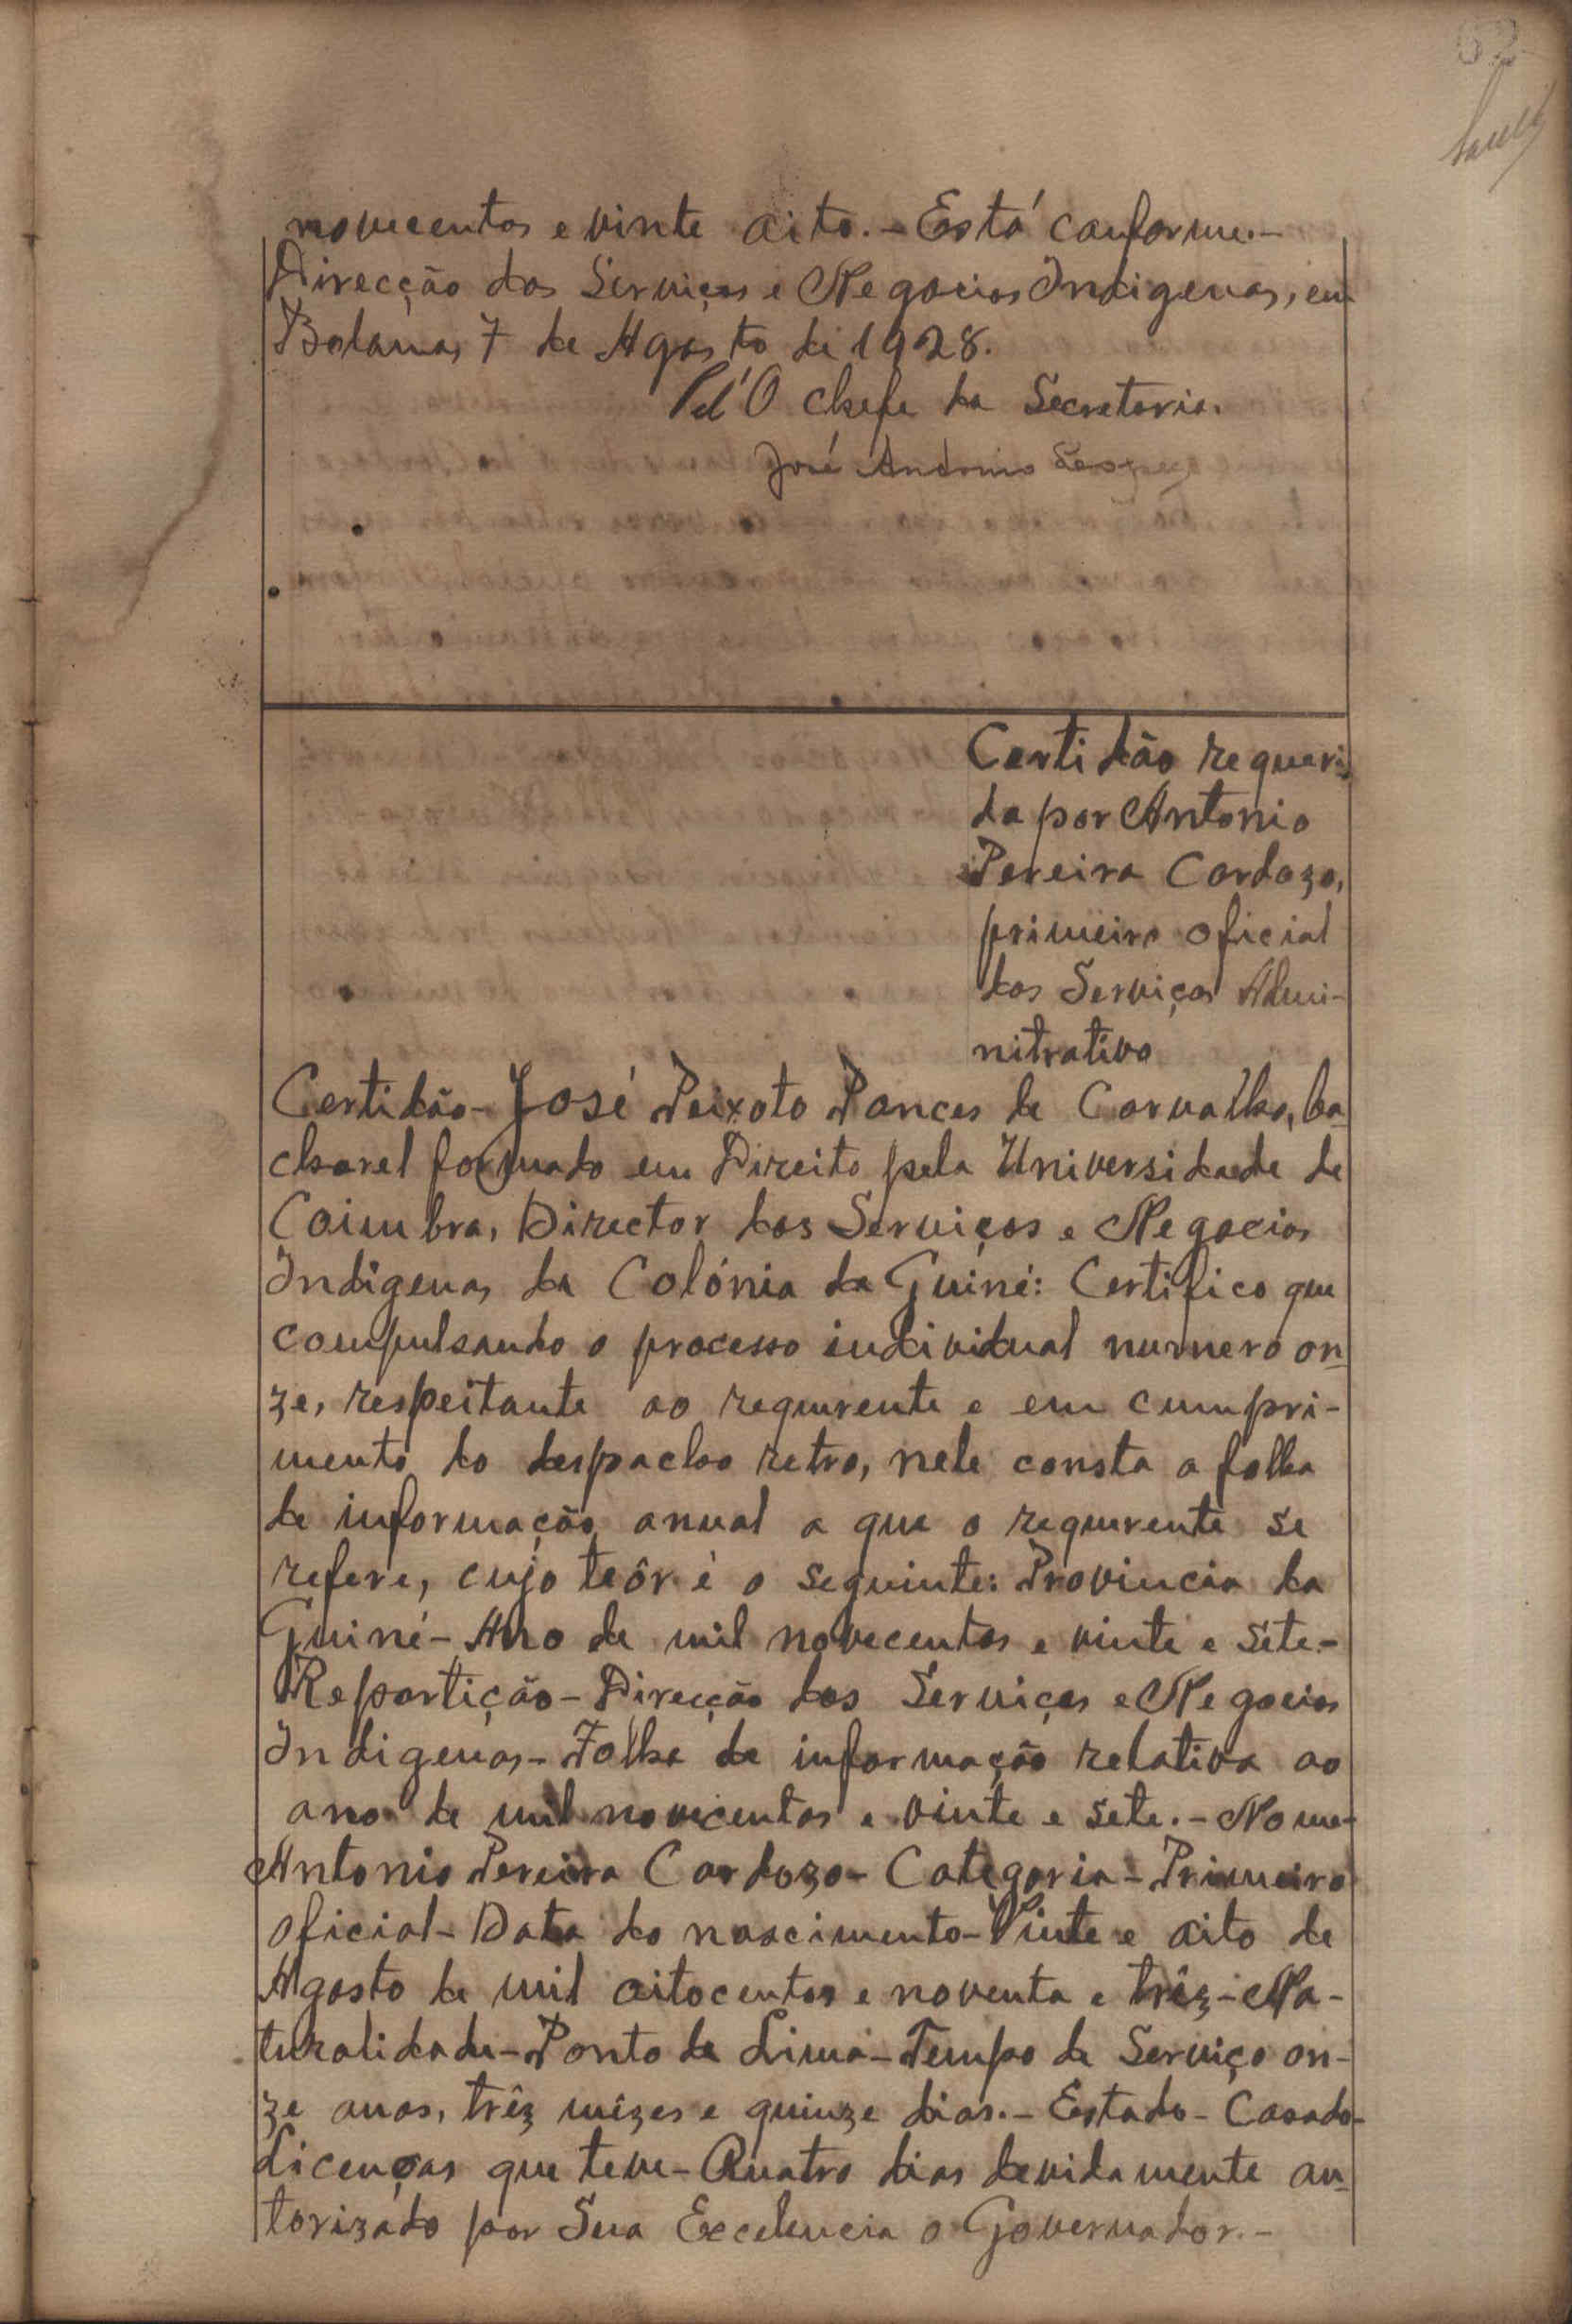 62
novecentos e vinte oito. - Está conforme. -
Direcção dos Serviços e Negocios Indigenas, em
Bolama, 7 de Agosto de 1928.
Pel'O Chefe da Secretaria.
José Antonio
Certidão requeri-
da por Antonio
Pereira Cardozo,
primeiro oficial
dos Serviços Admi-
nitrativo
Certidão - José Peixoto Ponces de Carvalho, ba-
charel formado em Direito pela Universidade de
Coimbra, Director dos Serviços e Negocios
Indigenas da Colónia da Guiné: Certifico que
compulsando o processo individual numero on-
ze, respeitante ao requerente e em cumpri-
mento do despacho retro, nele consta a folha
de informação anual a que o requerente se
refere, cujo teôr é o seguinte: Provincia da
Guiné - Ano de mil novecentos e vinte e sete. -
Repartição - Direcção dos Serviços e Negocios
Indigenas - Folha de informação relativa ao
ano de mil novecentos e vinte e sete. - Nome -
Antonio Pereira Cardozo - Categoria - Primeiro
oficial - Data do nascimento - Vinte e oito de
Agosto de mil oitocentos e noventa e três - Na-
turalidade - Ponto de Lima - Tempo de Serviço on-
ze anos, trêz mêzes e quinze dias. - Estado - Casado -
Licenças que teve - Quatro dias devidamente au-
torizado por Sua Excelencia o Governador. -